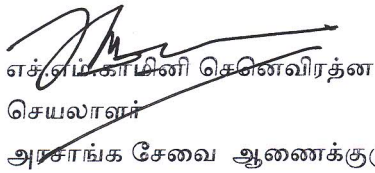 எச்.எம்.காமினி செனெவிரத்ன
செயலாளர்
அரசாங்க சேவை ஆணைக்கு